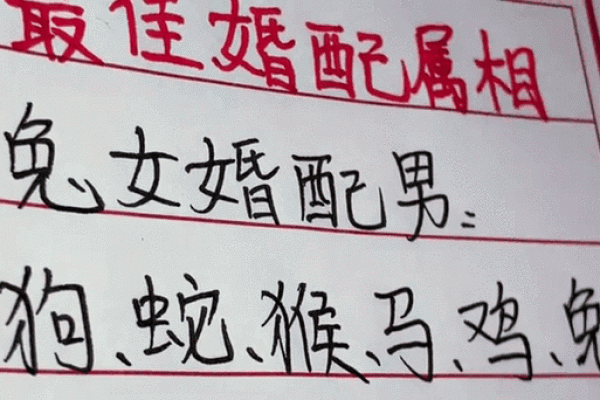 最佳婚配属相
兔女婚配男:
狗、蛇、猴、马、鸡、兔